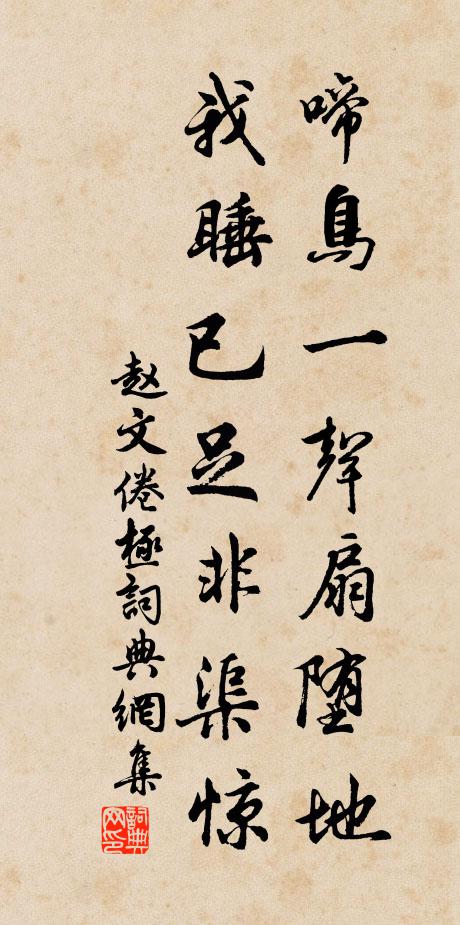 啼鳥一聲扇堕地
我睡已足非渠惊
赵文倦極詞典網集
詞典网印